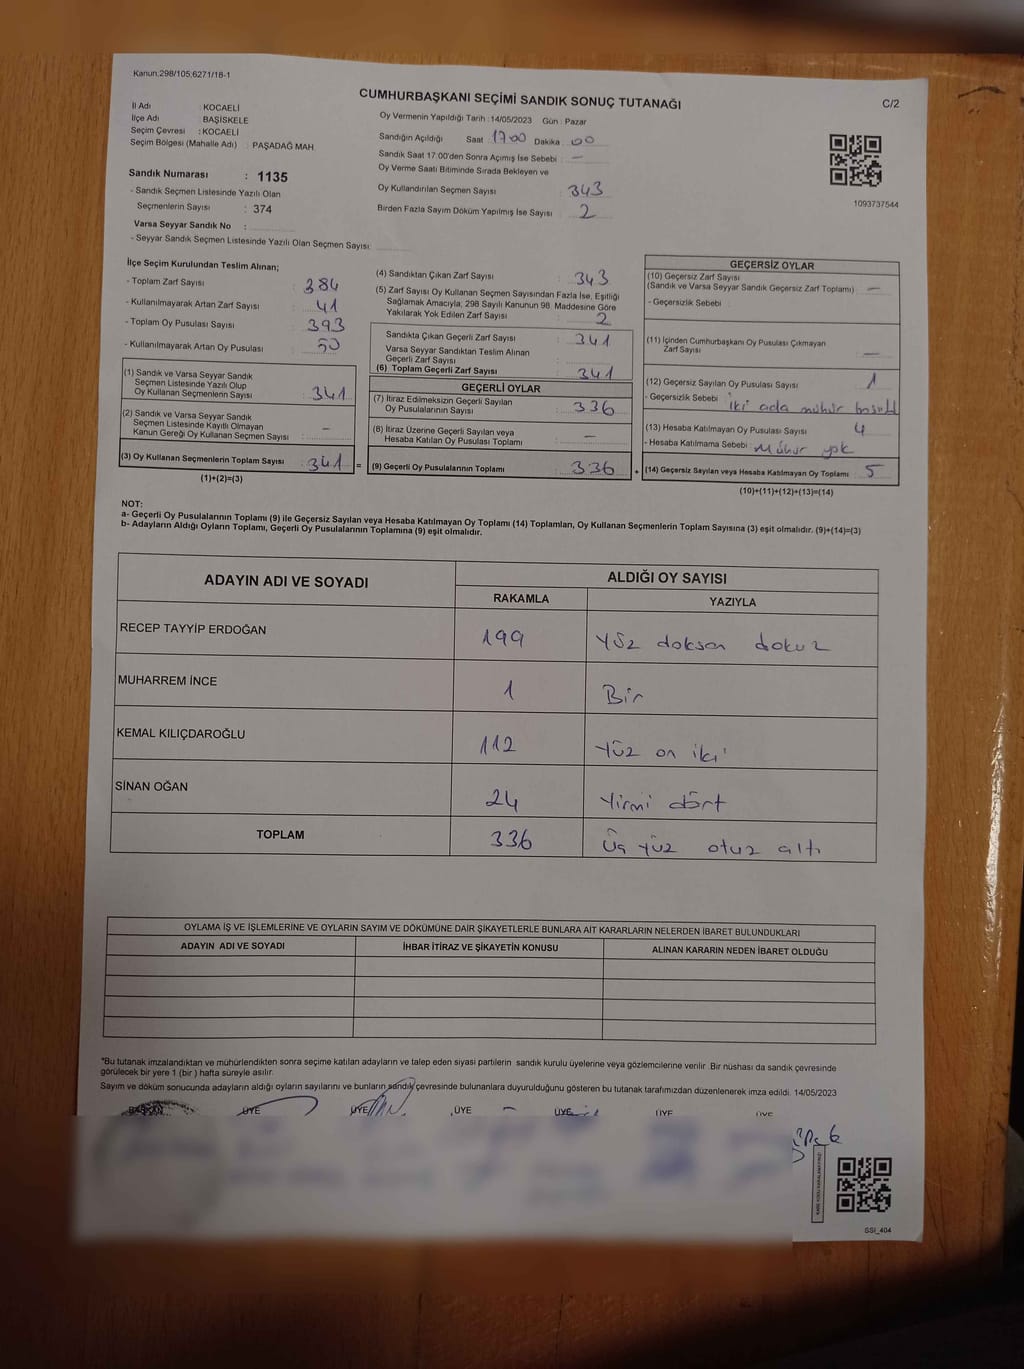 Kanun.298/105.6271/18-1
CUMHURBAŞKANI SEÇİMİ SANDIK SONUÇ TUTANAĞI
C/2
İl Adı : KOCAELİ
İlçe Adı : BAŞİSKELE
Seçim Çevresi : KOCAELİ
Seçim Bölgesi (Mahalle Adı) : PAŞADAĞ MAH.
Sandık Numarası : 1135
- Sandık Seçmen Listesinde Yazılı Olan
Seçmenlerin Sayısı : 374
Varsa Seyyar Sandık No :
- Seyyar Sandık Seçmen Listesinde Yazılı Olan Seçmen Sayısı:
Oy Vermenin Yapıldığı Tarih : 14/05/2023 Gün : Pazar
Sandığın Açıldığı Saat 17:00 Dakika 00
Sandık Saat 17:00'den Sonra Açımış İse Sebebi : —
Oy Verme Saati Bitiminde Sırada Bekleyen ve
Oy Kullandırılan Seçmen Sayısı : 343
Birden Fazla Sayım Döküm Yapılmış İse Sayısı : 2
1093737544
İlçe Seçim Kurulundan Teslim Alınan;
- Toplam Zarf Sayısı : 384
- Kullanılmayarak Artan Zarf Sayısı : 41
- Toplam Oy Pusulası Sayısı : 393
- Kullanılmayarak Artan Oy Pusulası : 50
(1) Sandık ve Varsa Seyyar Sandık
Seçmen Listesinde Yazılı Olup
Oy Kullanan Seçmenlerin Sayısı : 341
(2) Sandık ve Varsa Seyyar Sandık
Seçmen Listesinde Kayıtlı Olmayan
Kanun Gereği Oy Kullanan Seçmen Sayısı : —
(3) Oy Kullanan Seçmenlerin Toplam Sayısı : 341 =
(1)+(2)=(3)
(4) Sandıktan Çıkan Zarf Sayısı : 343
(5) Zarf Sayısı Oy Kullanan Seçmen Sayısından Fazla İse, Eşitliği
Sağlamak Amacıyla, 298 Sayılı Kanunun 98. Maddesine Göre
Yakılarak Yok Edilen Zarf Sayısı : 2
Sandıkta Çıkan Geçerli Zarf Sayısı : 341
Varsa Seyyar Sandıktan Teslim Alınan
Geçerli Zarf Sayısı :
(6) Toplam Geçerli Zarf Sayısı : 341
GEÇERLİ OYLAR
(7) İtiraz Edilmeksizin Geçerli Sayılan
Oy Pusulalarının Sayısı : 336
(8) İtiraz Üzerine Geçerli Sayılan veya
Hesaba Katılan Oy Pusulası Toplamı : —
(9) Geçerli Oy Pusulalarının Toplamı : 336 +
GEÇERSİZ OYLAR
(10) Geçersiz Zarf Sayısı
(Sandık ve Varsa Seyyar Sandık Geçersiz Zarf Toplamı) : —
- Geçersizlik Sebebi :
(11) İçinden Cumhurbaşkanı Oy Pusulası Çıkmayan
Zarf Sayısı : —
(12) Geçersiz Sayılan Oy Pusulası Sayısı : 1
- Geçersizlik Sebebi : iki ada mühür basıldı
(13) Hesaba Katılmayan Oy Pusulası Sayısı : 4
- Hesaba Katılmama Sebebi : Mühür yok
(14) Geçersiz Sayılan veya Hesaba Katılmayan Oy Toplamı : 5
(10)+(11)+(12)+(13)=(14)
NOT:
a- Geçerli Oy Pusulalarının Toplamı (9) ile Geçersiz Sayılan veya Hesaba Katılmayan Oy Toplamı (14) Toplamları, Oy Kullanan Seçmenlerin Toplam Sayısına (3) eşit olmalıdır. (9)+(14)=(3)
b- Adayların Aldığı Oyların Toplamı, Geçerli Oy Pusulalarının Toplamına (9) eşit olmalıdır.
ADAYIN ADI VE SOYADI
ALDIĞI OY SAYISI
RAKAMLA YAZIYLA
RECEP TAYYİP ERDOĞAN 199 Yüz doksan dokuz
MUHARREM İNCE 1 Bir
KEMAL KILIÇDAROĞLU 112 Yüz on iki
SİNAN OĞAN 24 Yirmi dört
TOPLAM 336 Üç yüz otuz altı
OYLAMA İŞ VE İŞLEMLERİNE VE OYLARIN SAYIM VE DÖKÜMÜNE DAİR ŞİKAYETLERLE BUNLARA AİT KARARLARIN NELERDEN İBARET BULUNDUKLARI
ADAYIN ADI VE SOYADI İHBAR İTİRAZ VE ŞİKAYETİN KONUSU ALINAN KARARIN NEDEN İBARET OLDUĞU
*Bu tutanak imzalandıktan ve mühürlendikten sonra seçime katılan adayların ve talep eden siyasi partilerin sandık kurulu üyelerine veya gözlemcilerine verilir. Bir nüshası da sandık çevresinde
görülecek bir yere 1 (bir) hafta süreyle asılır.
Sayım ve döküm sonucunda adayların aldığı oyların sayılarını ve bunların sandık çevresinde bulunanlara duyurulduğunu gösteren bu tutanak tarafımızdan düzenlenerek imza edildi. 14/05/2023
BAŞKAN ÜYE ÜYE ÜYE ÜYE ÜYE ÜYE
SSI_404